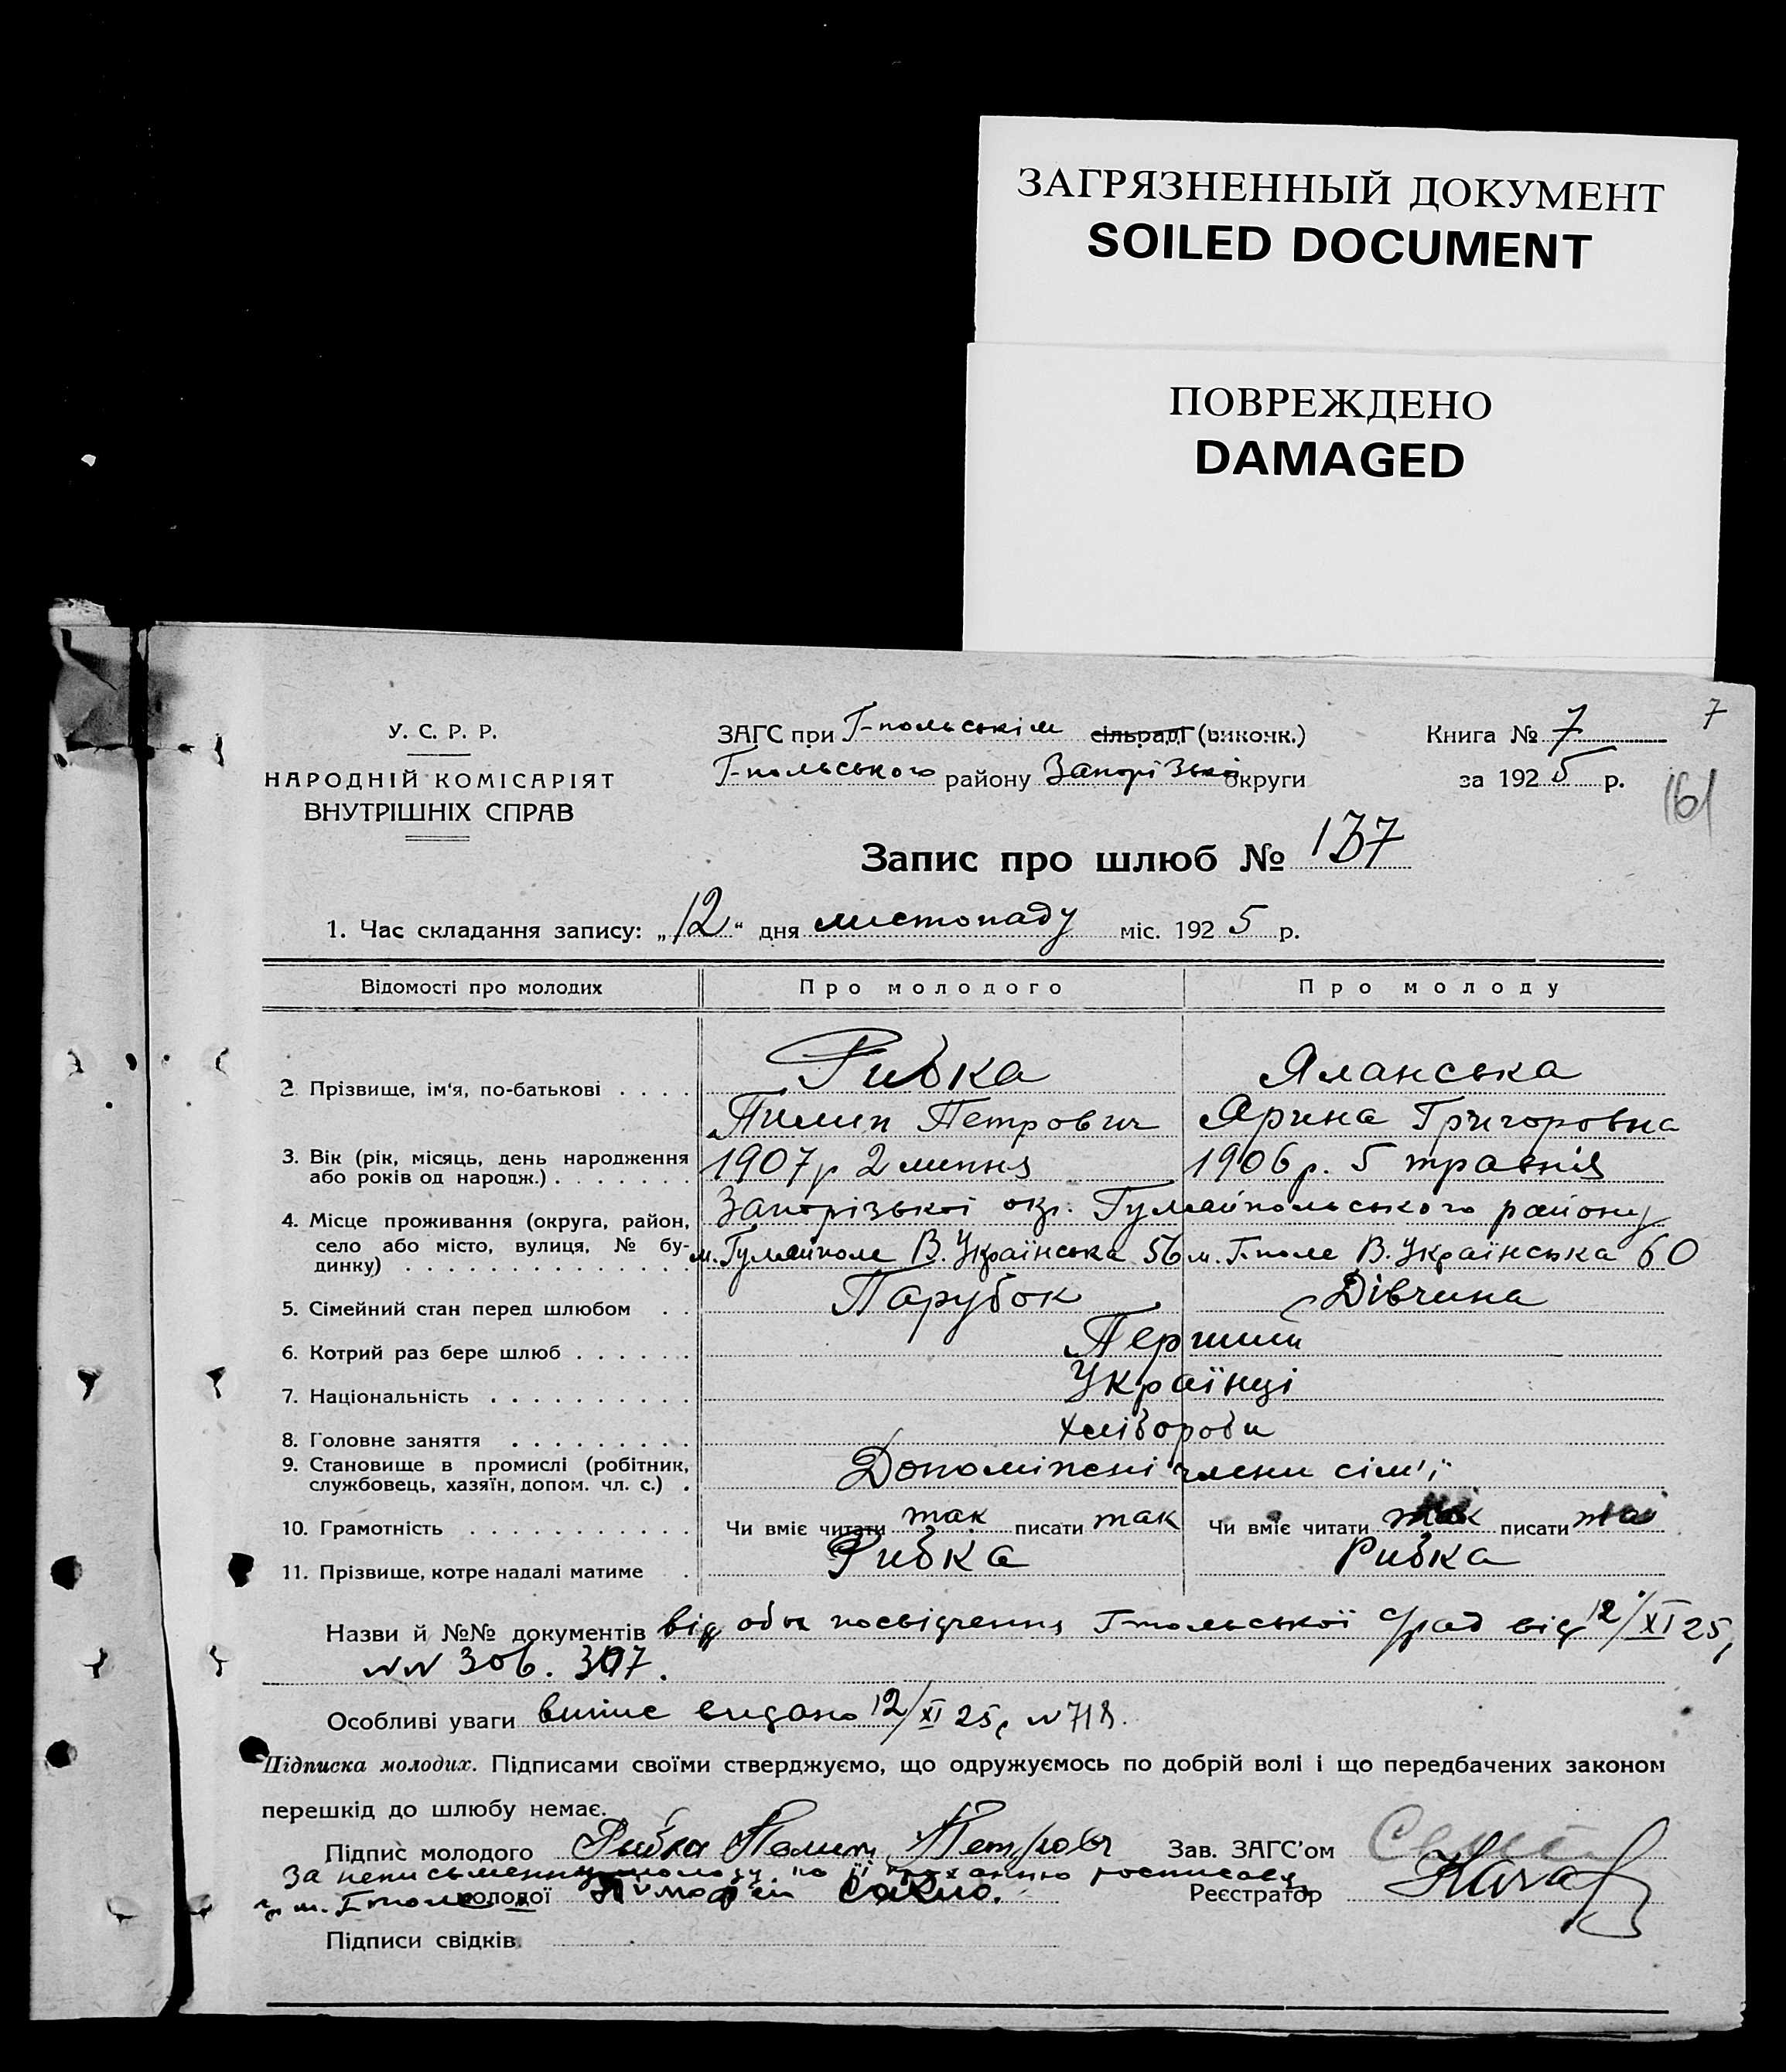 ЗАГРЯЗНЕННЫЙ ДОКУМЕНТ
SOILED DOCUMENT
ПОВРЕЖДЕНО
DAMAGED
7
У. С. Р. Р.
НАРОДНІЙ КОМІСАРІЯТ
ВНУТРІШНІХ СПРАВ
ЗАГС при Г-польськім сільраді (виконк.)
Г-польського району Запорізько округи
Книга № 7
за 1925 р.
161
Запис про шлюб № 137
1. Час складання запису: „12“ дня листопаду міс. 1925 р.
Відомості про молодих Про молодого Про молоду
2 Прізвище, ім'я, по-батькові Рибка Яланська
Пилип Петрович Ярина Григоровна
3. Вік (рік, місяць, день народження або років од народж.) 1907р 2 липня 1906р. 5 травня
4. Місце проживання (округа, район, село або місто, вулиця, № будинку) Запорізької окр. Гуляйпольського району
м. Гуляйполе В. Українська 56 м. Г-поле В. Українська 60
5. Сімейний стан перед шлюбом Парубок Дівчина
6. Котрий раз бере шлюб Перший
7. Національність Українці
8. Головне заняття хлібороби
9. Становище в промислі (робітник, службовець, хазяїн, допом. чл. с.) Допоміжені члени сім'ї
10. Грамотність Чи вміє читати так писати так Чи вміє читати так писати
11. Прізвище, котре надалі матиме Рибка Рибка
Назви й №№ документів від обох посвідчення Гпольської с/рад від 12/XI 25р
NN 306. 307.
Особливі уваги випис видано 12/XI 25р N 718.
Підписка молодих. Підписами своїми стверджуємо, що одружуємось по добрій волі і що передбачених законом
перешкід до шлюбу немає.
Підпис молодого Рибка Пилип Петрович Зав. ЗАГС'ом
За неписьменну молоду по її проханню росписався
гр м. Гполе молодої Тимофей Реєстратор
Підписи свідків